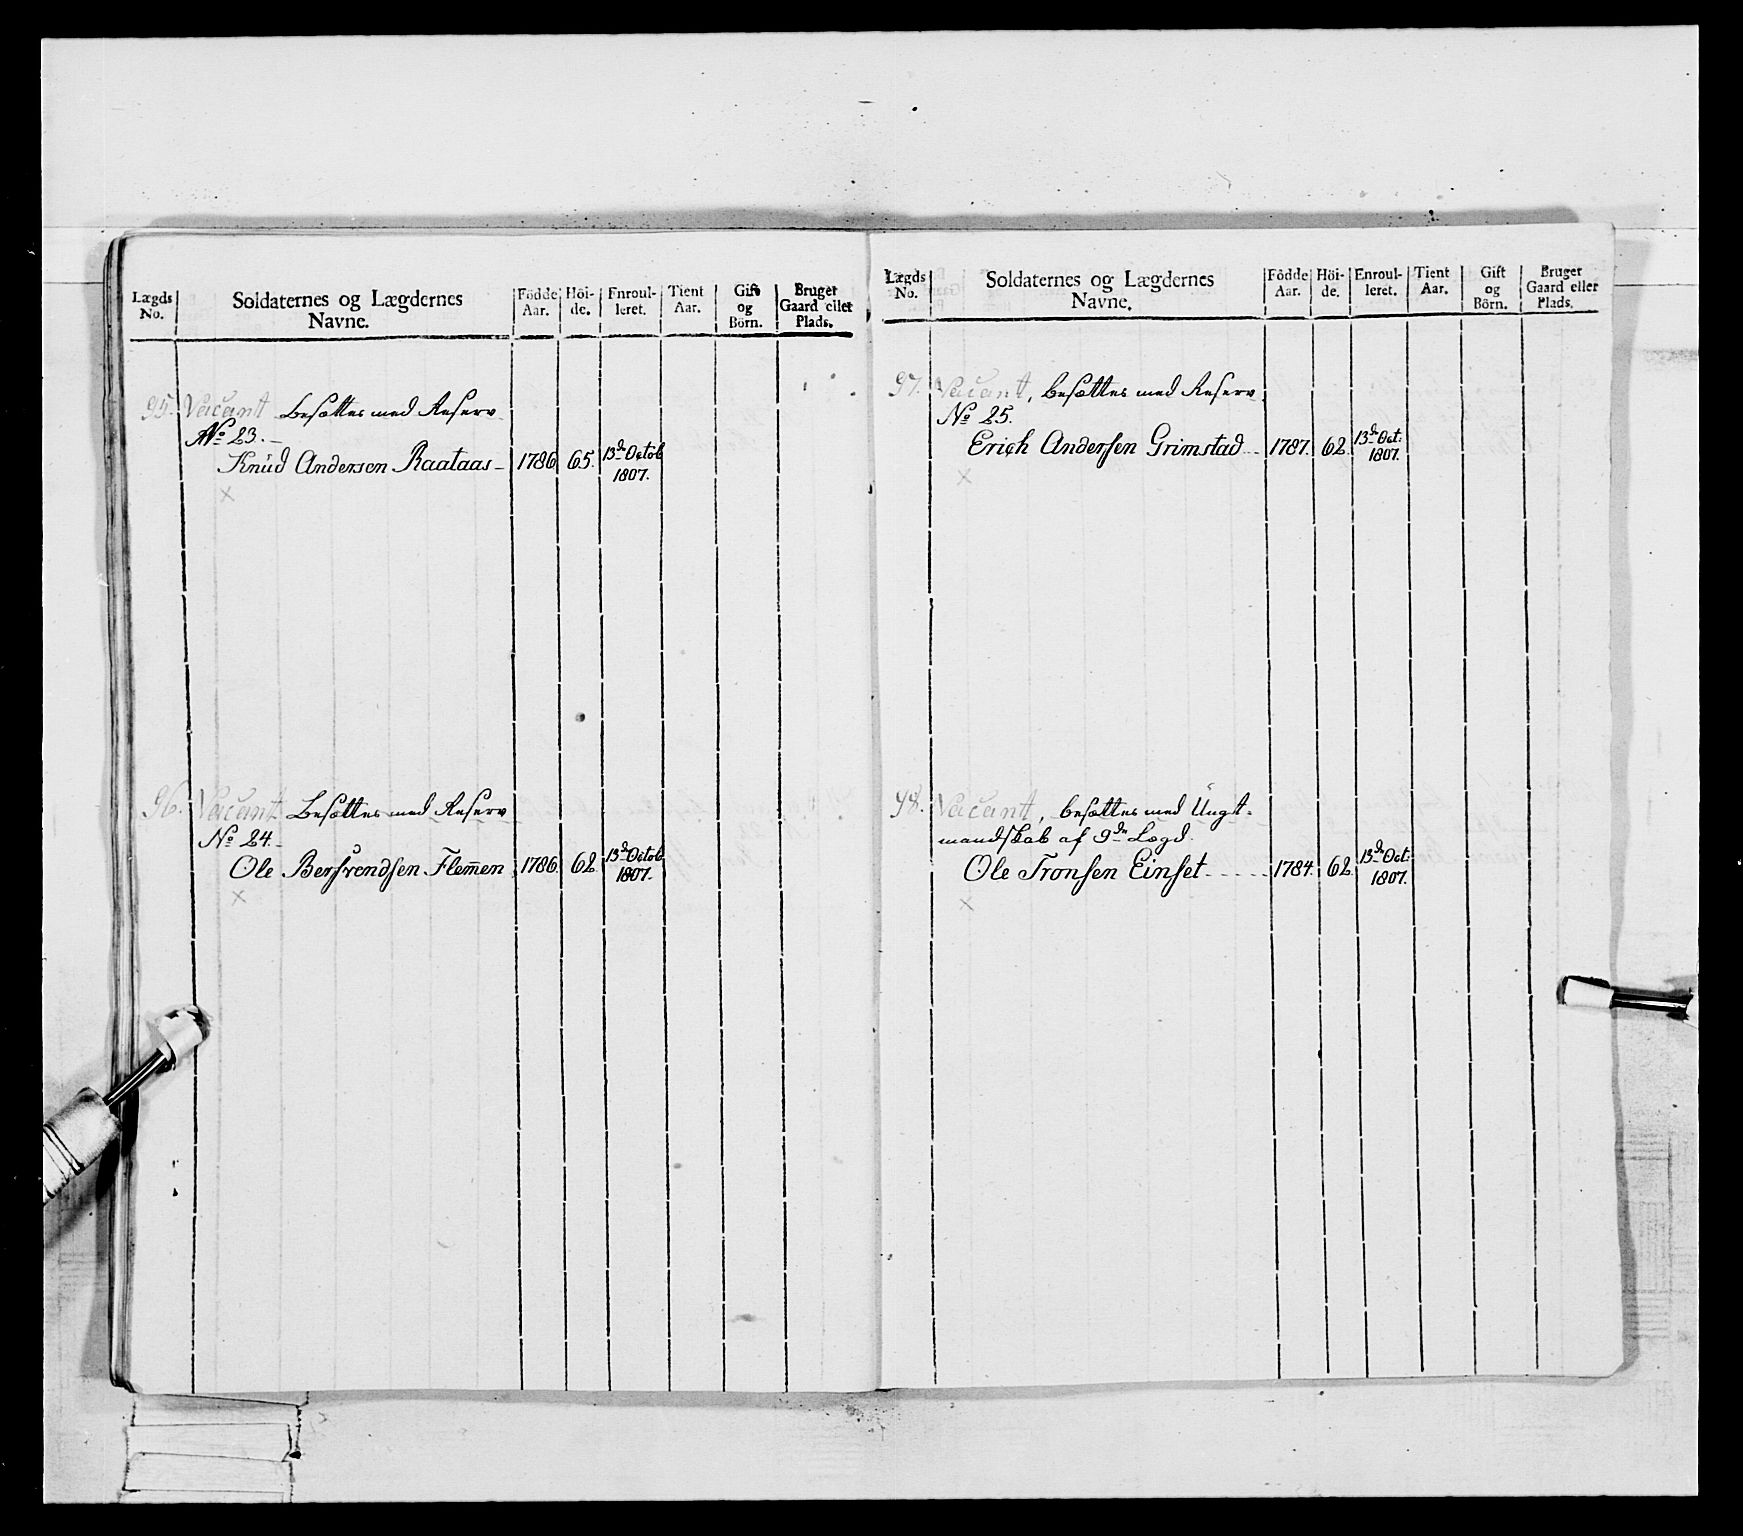 Lægds No. | Soldaternes og Lægdernes Navne. | Födde Aar. | Höi-de. | Enroul-leret. | Tient Aar. | Gift og Börn. | Bruger Gaard eller Plads.
95. Vacant besættes med Reserv
No 23.
Knud Andersen Raataas 1786 65. 13de Octob 1807.
×
96. Vacant besættes med Reserv
No 24.
Ole Flemen 1786. 62 13de Octob 1807.
×
Lægds No. | Soldaternes og Lægdernes Navne. | Födde Aar. | Höi-de. | Enroul-leret. | Tient Aar. | Gift og Börn. | Bruger Gaard eller Plads.
97. Vacant, besættes med Reserv
No 25.
Erich Andersen Grimstad 1787. 62. 13de Oct: 1807.
×
98. Vacant, besættes med Ungt-
mandskab af 9de Lægd.
Ole Tronsen Einset 1784. 62 13de Oct: 1807.
×